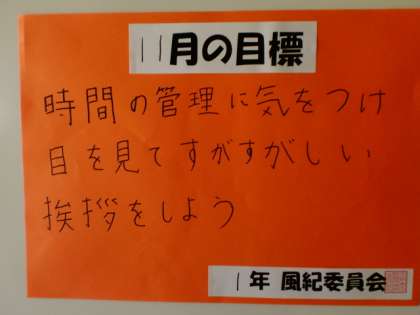 11月の目標
時間の管理に気をつけ
目を見てすがすがしい
挨拶をしよう
1年 風紀委員会